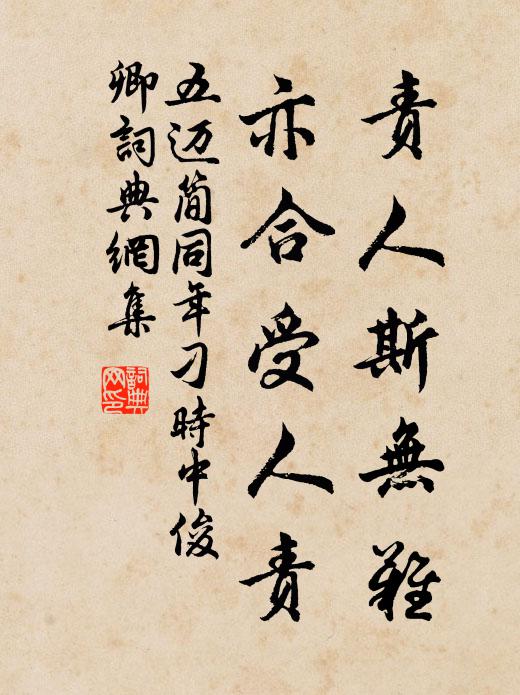 責人斯無難
亦合受人責
五迈简同年刁時中俊
卿詞典網集
詞典
网印